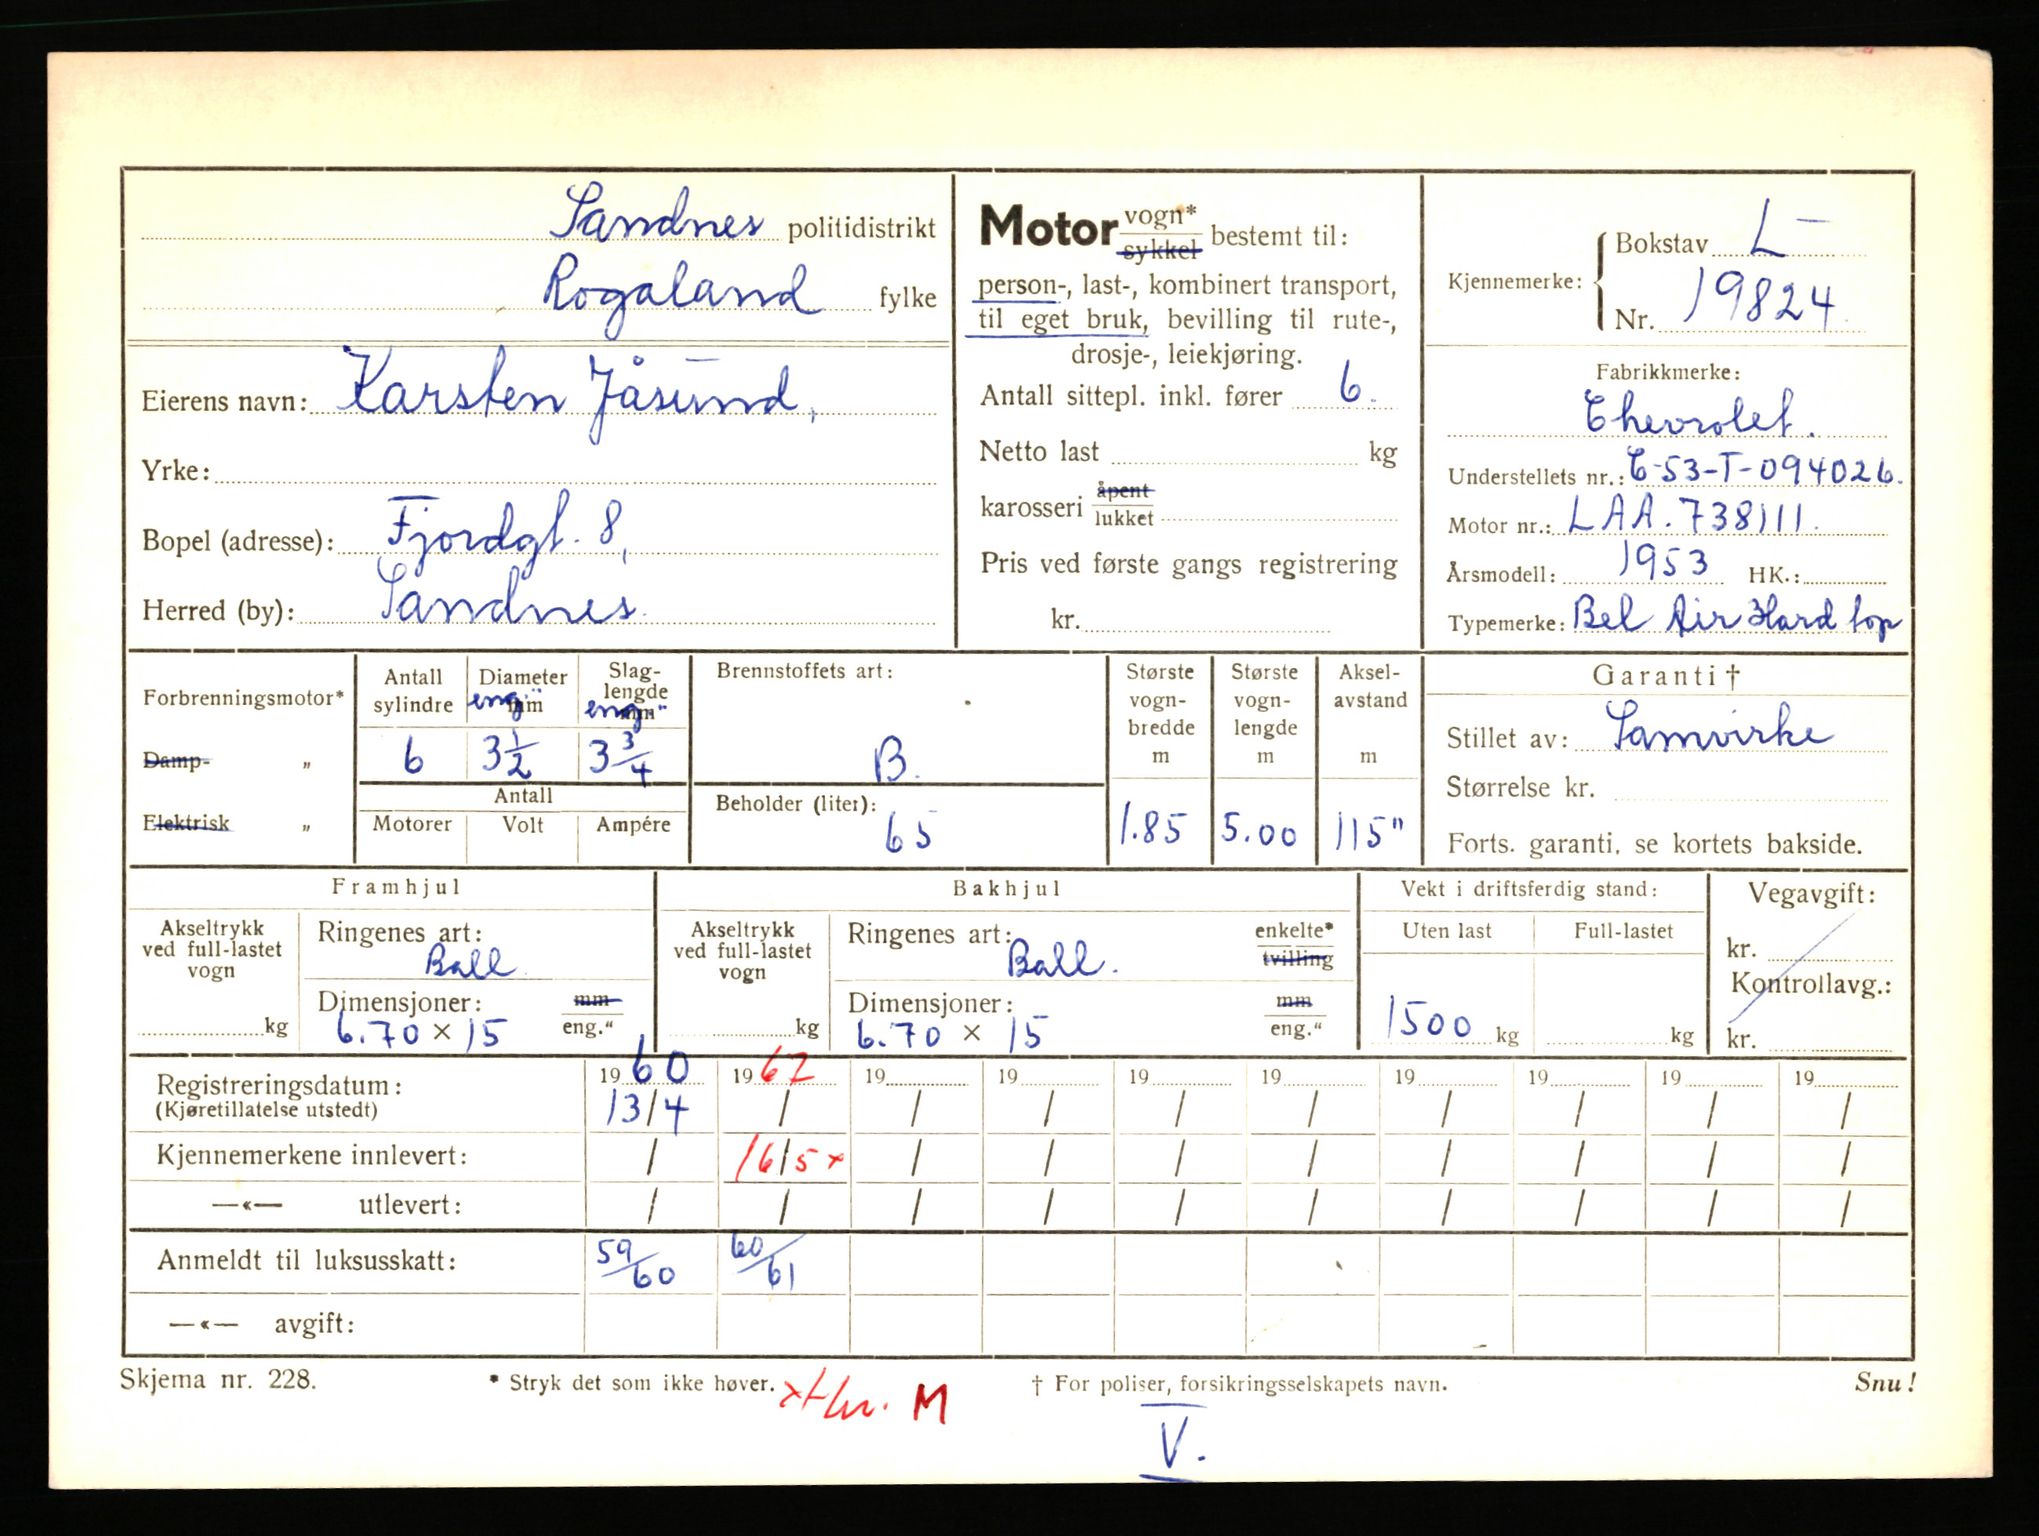 Sandnes politidistrikt
Rogaland fylke
Eierens navn: Karsten Jåsund,
Yrke:
Bopel (adresse): Fjordgt. 8,
Herred (by): Sandnes.
Motor vogn* sykkel bestemt til:
person-, last-, kombinert transport,
til eget bruk, bevilling til rute-,
drosje-, leiekjøring.
Antall sittepl. inkl. fører 6.
Netto last kg
karosseri åpent lukket
Pris ved første gangs registrering
kr.
Kjennemerke: Bokstav L-
Nr. 19824
Fabrikkmerke:
Chevrolet.
Understellets nr.: C-53-T-094026.
Motor nr.: LAA.738111.
Årsmodell: 1953 HK.:
Typemerke: Bel Air Hard top
Forbrenningsmotor*
Damp- „
Elektrisk „
Antall sylindre
6
Diameter mm eng"
3 1/2
Slaglengde mm eng."
3 3/4
Antall
Motorer Volt Ampére
Brennstoffets art:
B.
Beholder (liter):
65
Største vognbredde m
1.85
Største vognlengde m
5.00
Akselavstand m
115"
Garanti †
Stillet av: Samvirke
Størrelse kr.
Forts. garanti, se kortets bakside.
Framhjul
Akseltrykk ved full-lastet vogn
kg
Ringenes art:
Ball
Dimensjoner: mm
6.70 × 15 eng."
Bakhjul
Akseltrykk ved full-lastet vogn
kg
Ringenes art: enkelte*
Ball. tvilling
Dimensjoner: mm
6.70 × 15 eng."
Vekt i driftsferdig stand:
Uten last Full-lastet
1500 kg kg
Vegavgift:
kr.
Kontrollavg.:
kr.
Registreringsdatum: 1960 1962 19 19 19 19 19 19 19 19
(Kjøretillatelse utstedt) 13/4 / / / / / / / / /
Kjennemerkene innlevert: / 16/5 x / / / / / / / /
—«— utlevert: / / / / / / / / / /
Anmeldt til luksusskatt: 59/60 60/61
—«— avgift:
Skjema nr. 228. * Stryk det som ikke høver. † For poliser, forsikringsselskapets navn. Snu!
M
V.